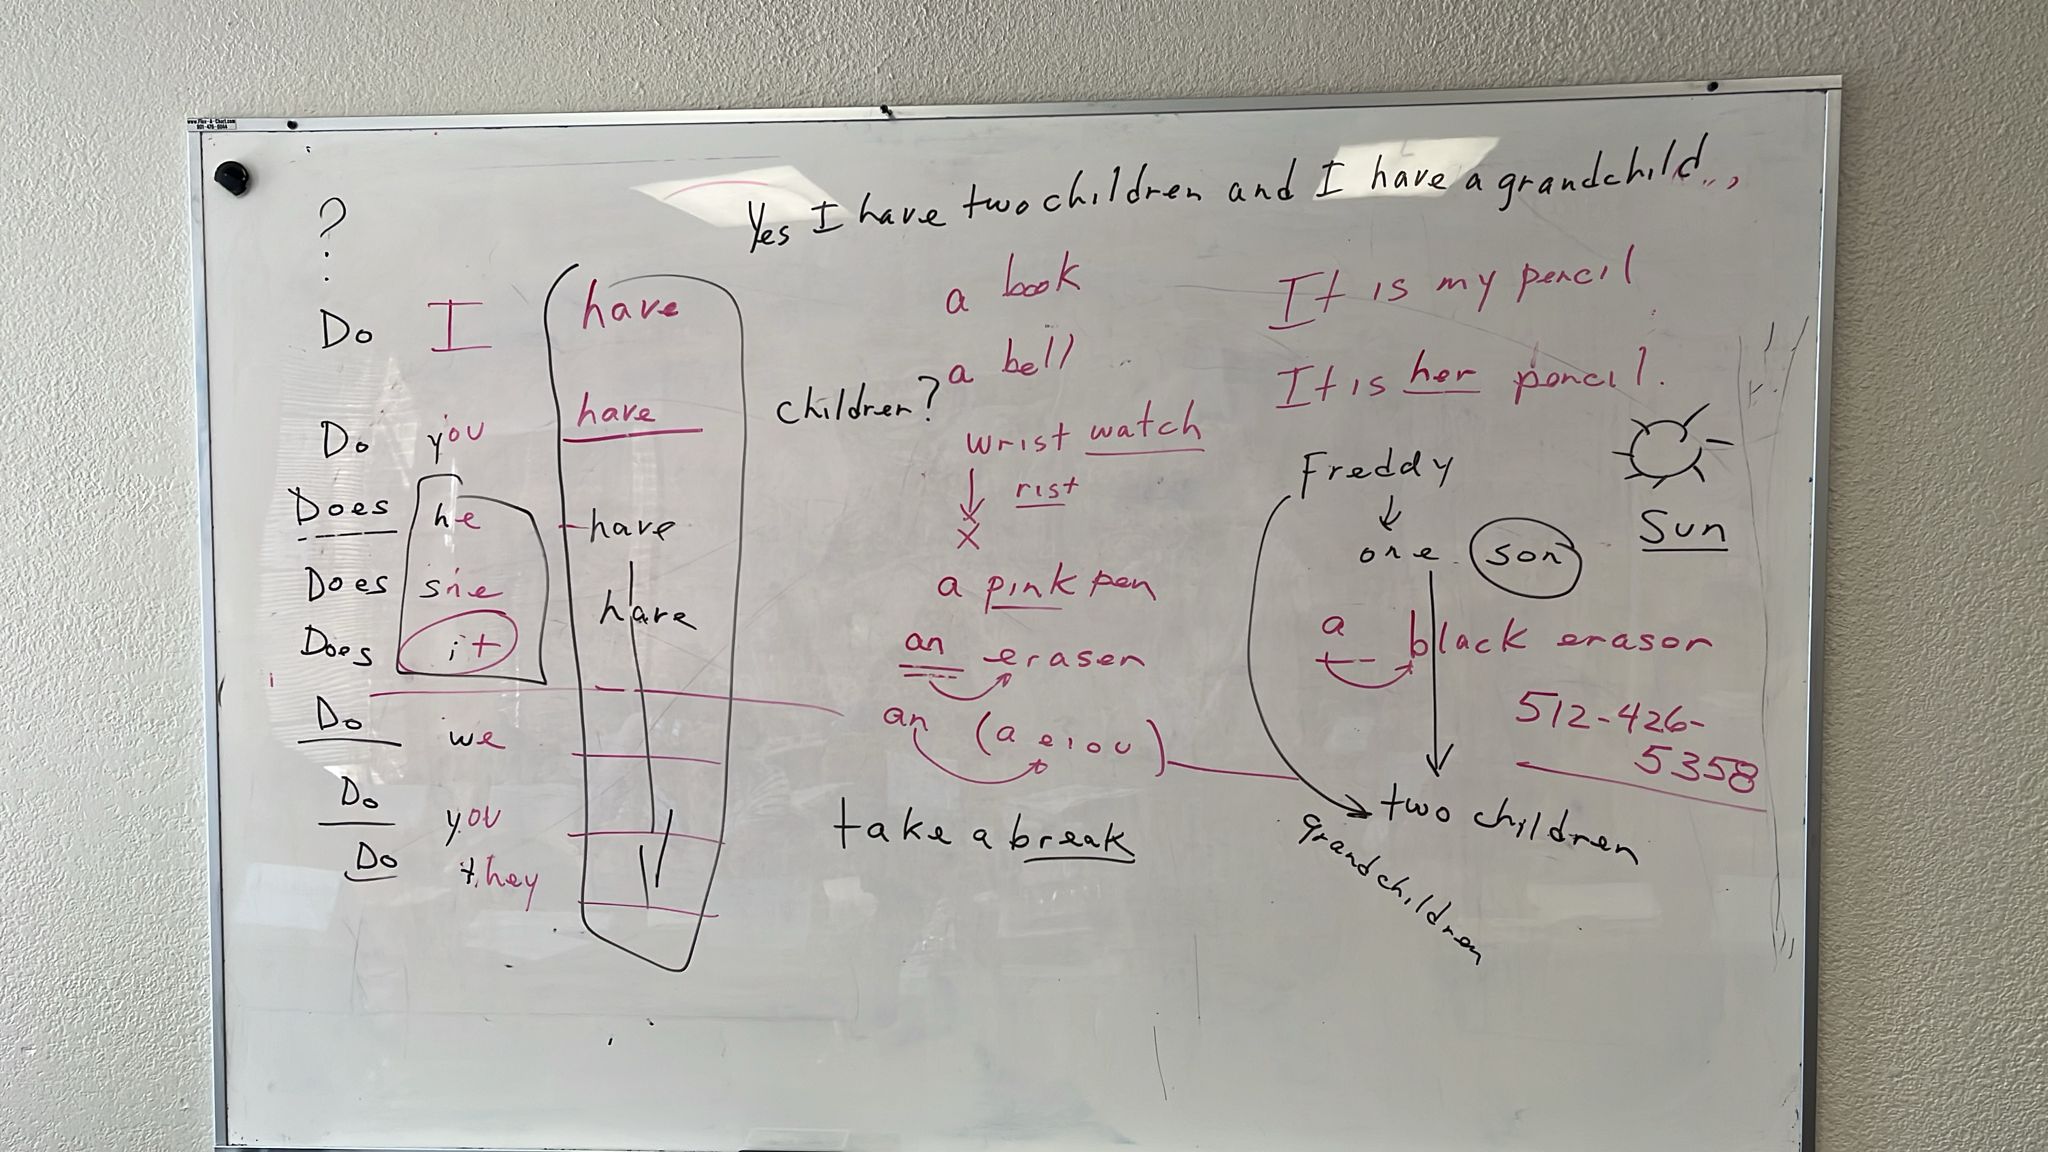 www.Flex-A-Chart.com
801-476-6044
Yes I have two children and I have a grandchild...
?
Do I have
Do you have children?
Does he have
Does she have
Does it
Do we
Do you
Do they
a book
a bell
wrist watch
rist
X
X
a pink pen
an eraser
an (a e i o u)
take a break
It is my pencil
It is her pencil.
Freddy
one son
Sun
a black eraser
512-426-
5358
two children
grandchildren